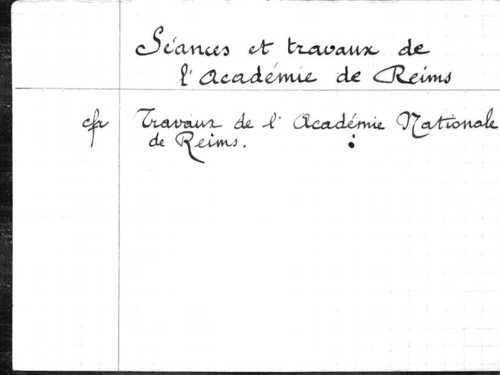 Séances et travaux de
l'Académie de Reims
cfr Travaux de l'Académie Nationale
de Reims.